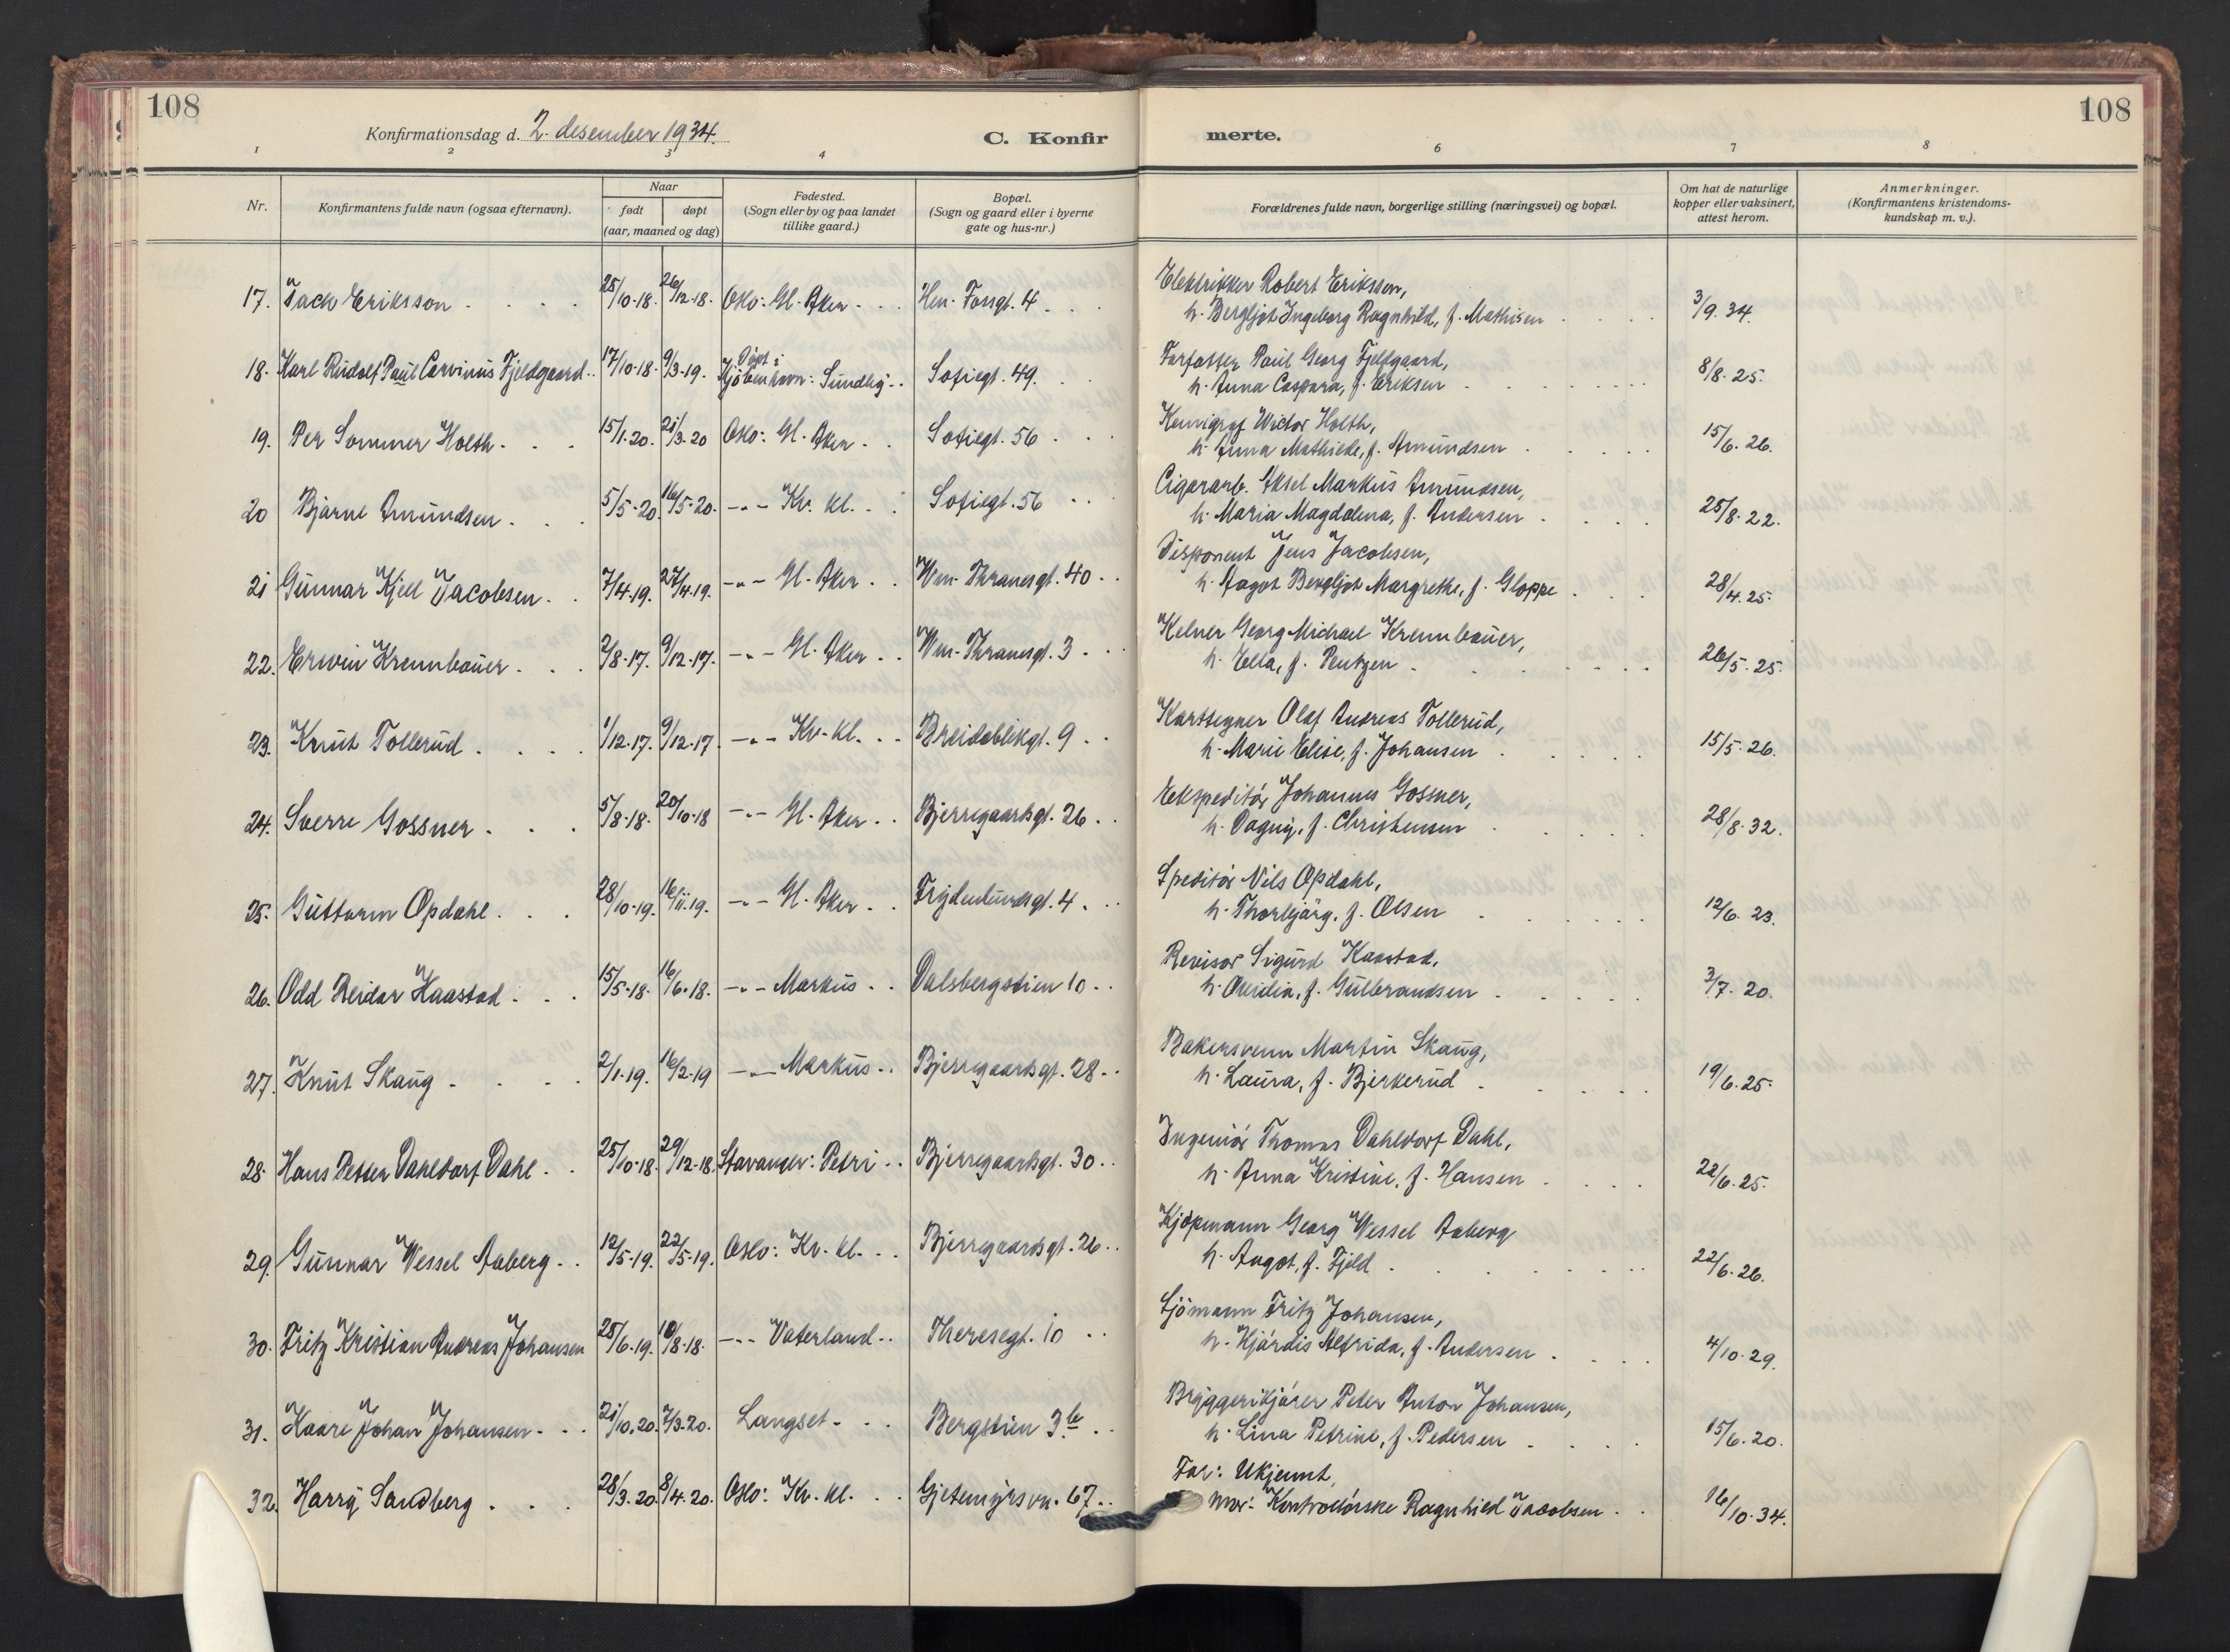 108
108
Konfirmationsdag d. 2. desember 1934.
C. Konfir merte.
1 2 3 4 6 7 8
Nr.
Konfirmantens fulde navn (ogsaa efternavn).
Naar
født døpt
(aar, maaned og dag)
Fødested.
(Sogn eller by og paa landet
tillike gaard.)
Bopæl.
(Sogn og gaard eller i byerne
gate og hus-nr.)
Forældrenes fulde navn, borgerlige stilling (næringsvei) og bopæl.
Om hat de naturlige
kopper eller vaksinert,
attest herom.
Anmerkninger.
(Konfirmantens kristendoms-
kundskap m. v.).
Elektrikker Robert Eriksson,
17. Jack Eriksson 25/10-18. 26/12-18. Oslo: Gl. Aker Hm. Fossgt. 4
h. Bergljot Ingeborg Ragnhild, f. Mathisen 3/9. 34.
Forfatter Paul Georg Fjeldgaard,
Døpt i
18. Karl Rudolf Paul Corvinus Fjeldgaard 17/10-18. 9/3-19. Kjøbenhavn: Sundby Sofiegt. 49.
h. Anna Caspara, f. Eriksen 8/8. 25.
Kemigraf Wictor Holth,
19. Per Sommer Holth 15/1.20. 21/3.20 Oslo: Gl. Aker Sofiegt. 56
h. Anna Mathilde, f. Amundsen 15/6. 26.
Cigararb. Aksel Markus Amundsen,
20 Bjarne Amundsen 5/5-20. 16/5-20. -"- Kv. kl. Sofiegt. 56
h. Maria Magdalena, f. Andersen 25/8. 22.
Disponent Jens Jacobsen,
21 Gunnar Kjell Jacobsen 7/4.19. 27/4.19. -"- Gl. Aker Wm. Thranesgt. 40
h. Aagot Bergljot Margrethe, f. Gloppe 28/4. 25.
Kelner Georg Michael Krennbauer,
22. Erwin Krennbauer 2/8-17. 9/12-17. -"- Gl. Aker Wm. Thranesgt. 3
h. Ella, f. Pentzen 26/5. 25.
Karttegner Olaf Andreas Tollerud,
23. Knut Tollerud 1/12-17. 9/12-17. -"- Kv. kl. Breidablikgt. 9
h. Marie Elise, f. Johansen 15/5. 26.
Ekspeditør Johannes Gossner,
24. Sverre Gossner 5/8-18. 20/10-18 -"- Gl. Aker Bjerregaardsgt. 26
h. Dagny, f. Christensen 28/8. 32.
Speditør Nils Opdahl,
25. Guttorm Opdahl 28/10-19. 16/11.19. -"- Gl. Aker Frydenlundsgt. 4
h. Thorbjørg, f. Olsen 12/6. 23.
Revisor Sigurd Kaastad,
26. Odd Reidar Kaastad 15/5-18. 16/6-18. -"- Markus Dalsbergstien 10
h. Ovidia, f. Gulbrandsen 3/7. 20.
Bakersvenn Martin Skaug,
27. Knut Skaug 2/1-19. 16/2-19 -"- Markus Bjerregaardsgt. 28
h. Laura, f. Bjerkerud 19/6. 25.
Ingeniør Thomas Dahldorf Dahl,
28. Hans Petter Dahldorf Dahl 25/10-18. 29/12-18. Stavanger: Petri Bjerregaardsgt. 30
h. Anna Kristine, f. Hansen 22/6. 25.
Kjøpmann Georg Wessel Aaberg
29. Gunnar Wessel Aaberg 12/5-19. 22/5-19. Oslo: Kv. kl. Bjerregaardsgt. 26
h. Aagot, f. Fjeld 22/6. 26.
Sjømann Fritz Johansen,
30. Fritz Kristian Andreas Johansen 25/6.19. 10/8-18. -"- Vaterland Theresegt. 10
h. Hjørdis Alfrida, f. Andersen 4/10. 29.
Bryggerikjører Peter Anton Johansen,
31. Kaare Johan Johansen 21/10.20. 7/3.20. Langset Bergstien 3b
h. Lina Petrine, f. Pedersen 15/6. 20.
Far: Ukjennt,
32. Harry Sandberg 28/3.20. 8/4.20. Oslo: Kv. kl. Gjetemyrsvn. 67
mor: Kontrollørske Ragnhild Jacobsen 16/10. 34.